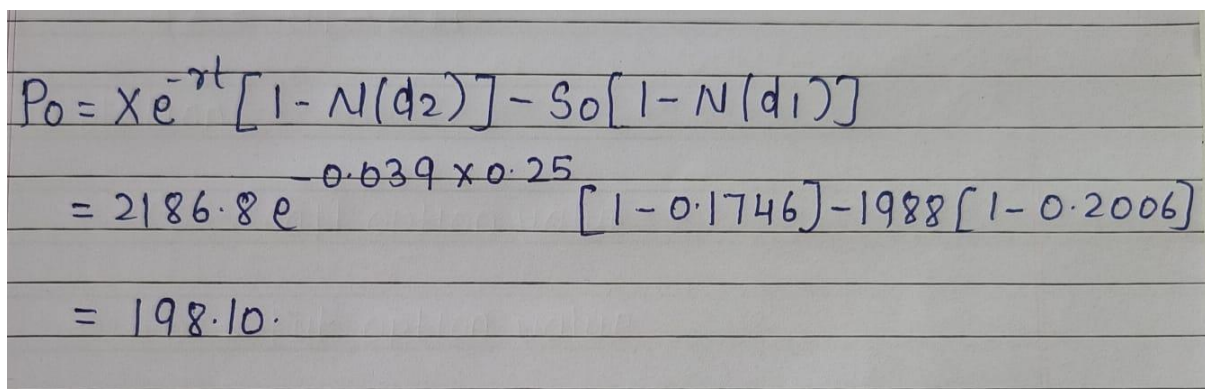 P0 = Xe^-rt [1 - N(d2)] - S0[1 - N(d1)]
= 2186.8 e^-0.039 x 0.25 [1 - 0.1746] - 1988 [1 - 0.2006]
= 198.10.